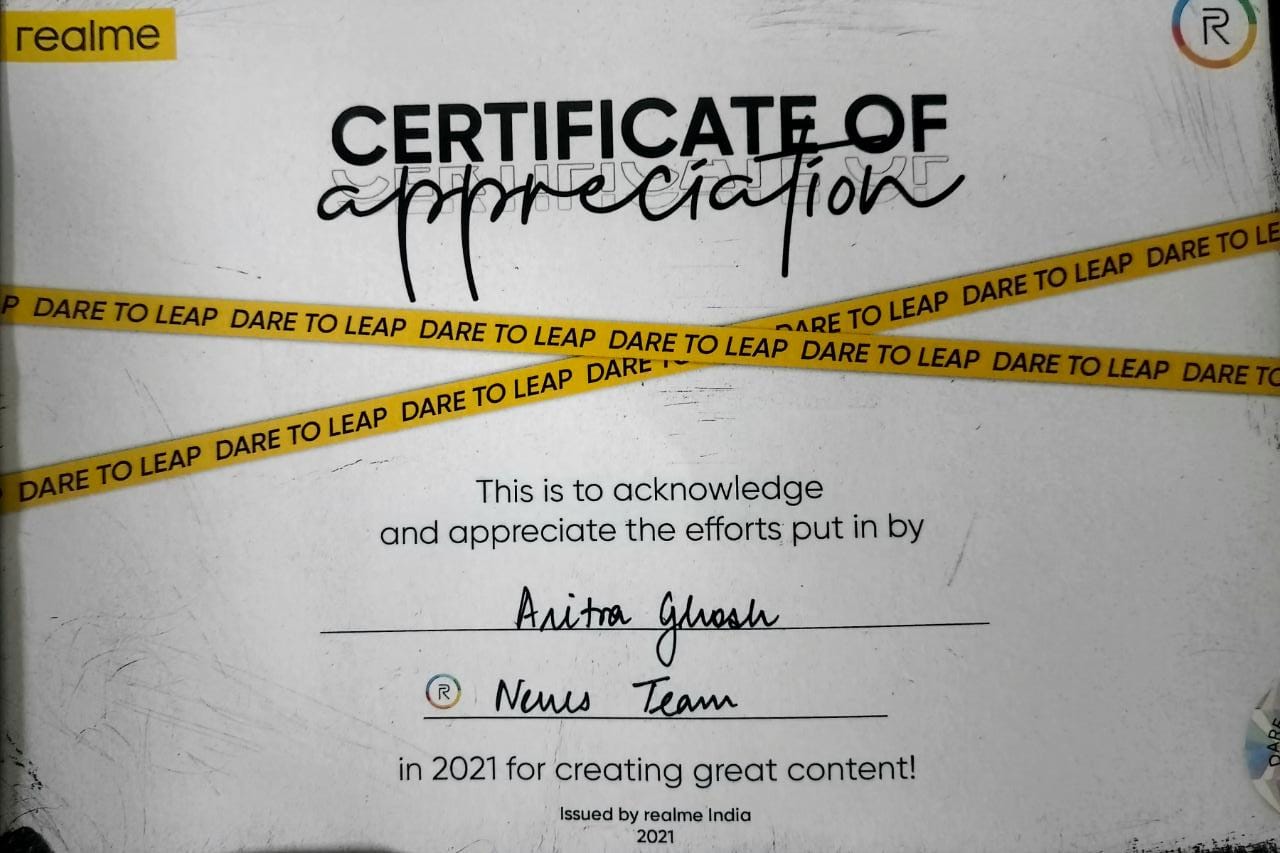 realme
R
CERTIFICATE OF
appreciation
P DARE TO LEAP DARE TO LEAP DARE TO LEAP DARE TO LEAP DARE TO LEAP DARE TO LEAP DARE TO
DARE TO LEAP DARE TO LEAP DARE TO LEAP DARE DARE TO LEAP DARE TO LEAP DARE TO LE
This is to acknowledge
and appreciate the efforts put in by
Aritra Ghosh
R News Team
in 2021 for creating great content!
Issued by realme India
2021
DARE